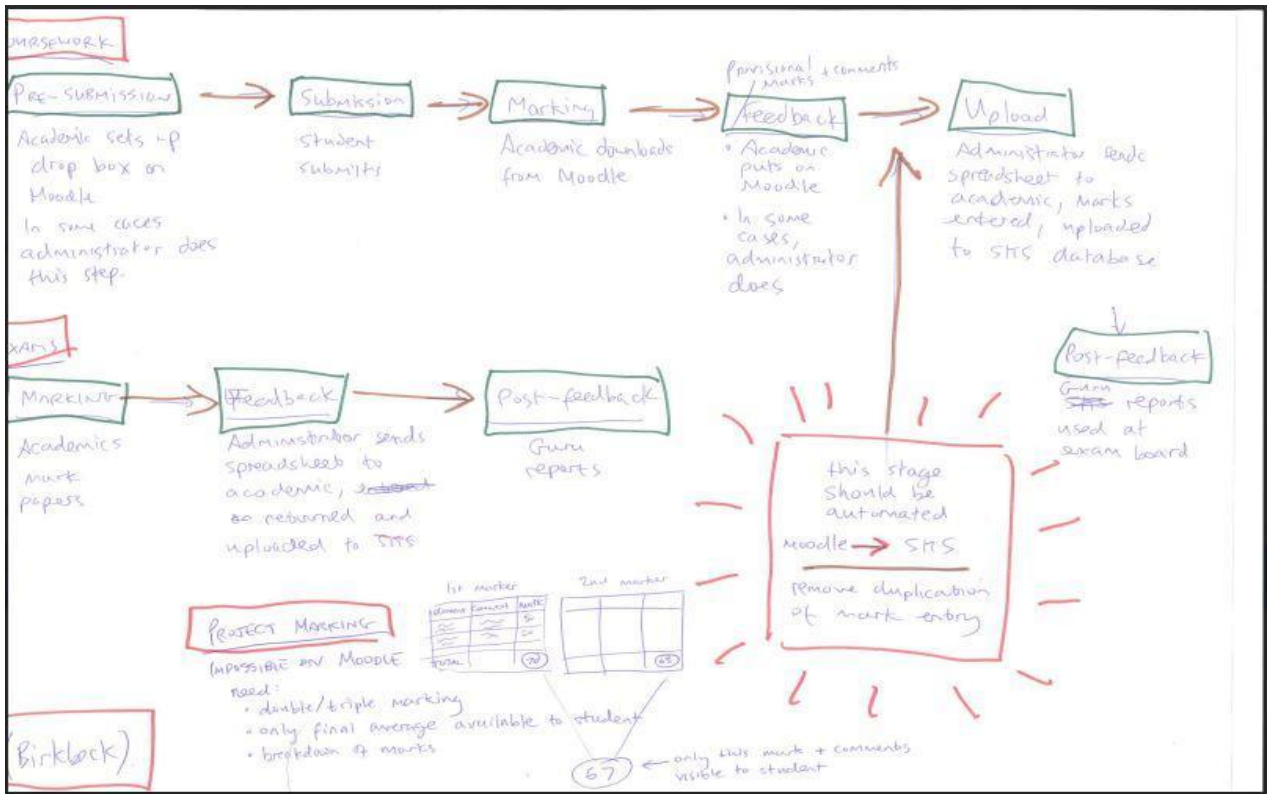 OURSEWORK
PRE-SUBMISSION
Academic sets up
drop box on
Moodle
In some cases
administrator does
this step.
Submission
student
submits
Marking
Academic downloads
from Moodle
Provisional marks + comments
Feedback
• Academic
puts on
Moodle
• In some
cases,
administrator
does
Upload
Administrator sends
spreadsheet to
academic, marks
entered, uploaded
to SITS database
Post-feedback
Guru
reports
used at
exam board
XAMS
MARKING
Academics
mark
papers
Feedback
Administrator sends
spreadsheet to
academic,
returned and
uploaded to SITS
Post-feedback
Guru
reports
this stage
should be
automated
Moodle → SITS
remove duplication
of mark entry
PROJECT MARKING
IMPOSSIBLE ON MOODLE
need:
• double/triple marking
• only final average available to student
• breakdown of marks
1st marker
comment mark
TOTAL 70
2nd marker
65
67
← only this mark + comments
visible to student
(Birkbeck)